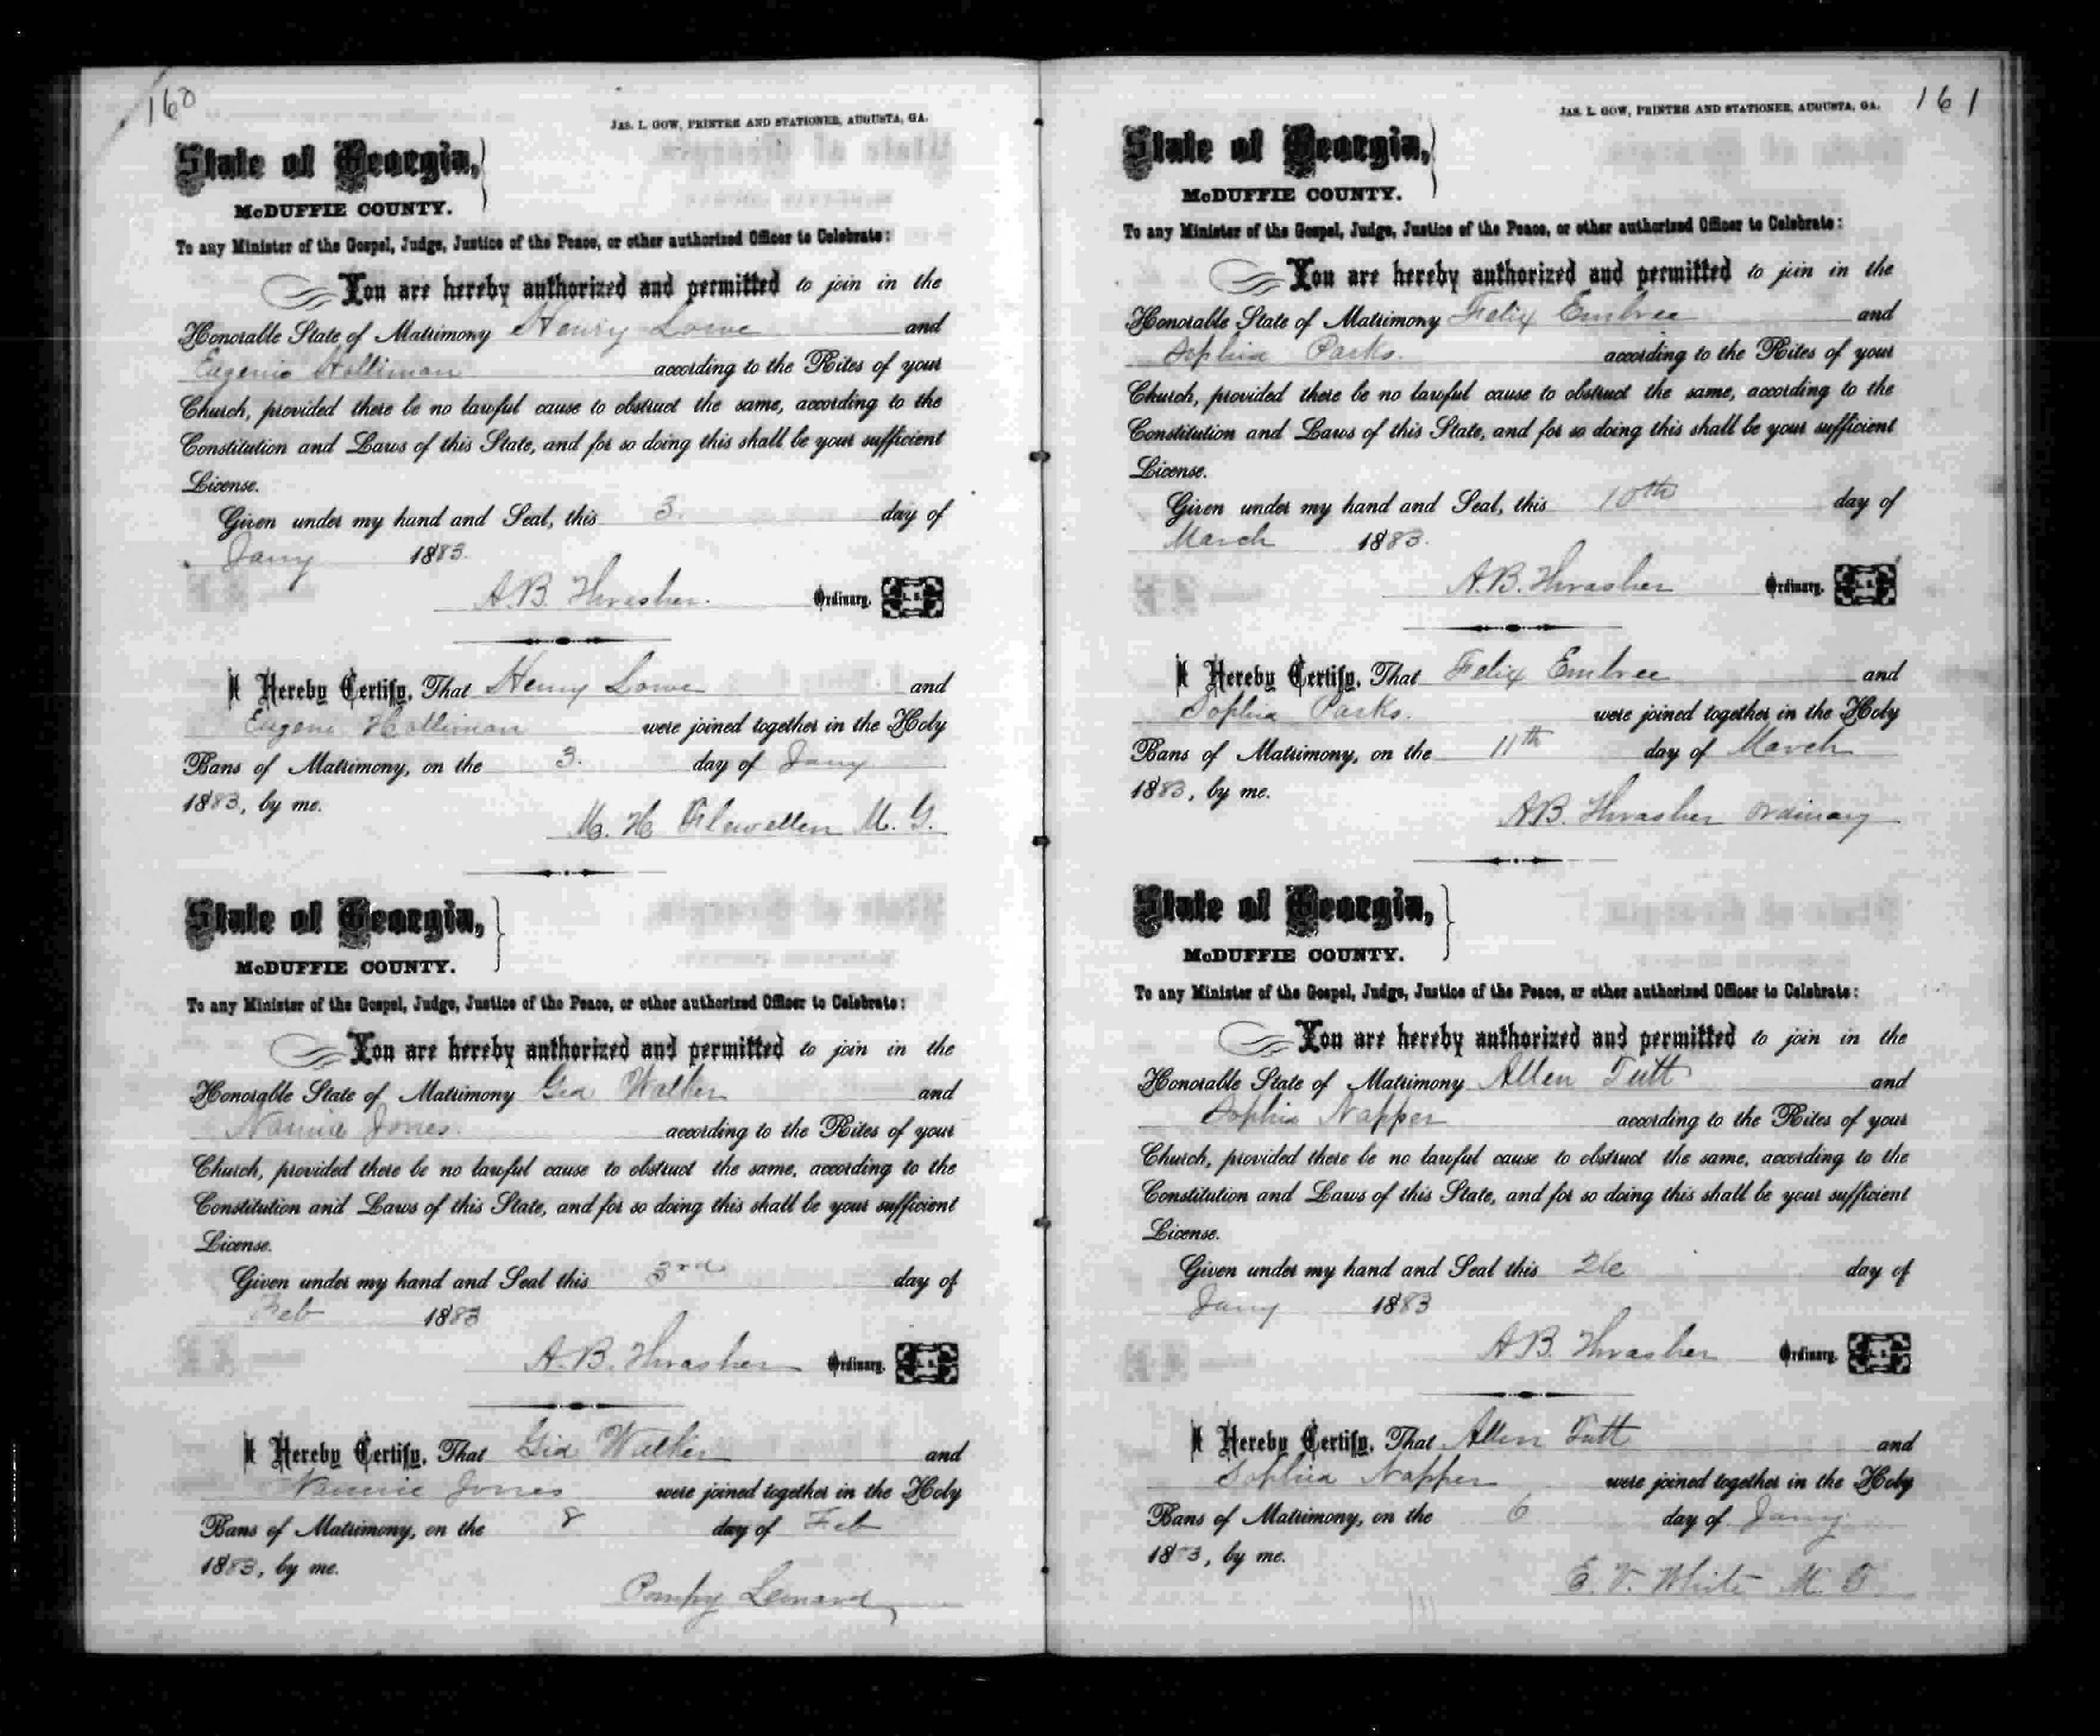 160
JAS. L. GOW, PRINTER AND STATIONER, AUGUSTA, GA.
State of Georgia,
McDUFFIE COUNTY.
To any Minister of the Gospel, Judge, Justice of the Peace, or other authorized Officer to Celebrate:
You are hereby authorized and permitted to join in the
Honorable State of Matrimony Henry Lowe and
Eugenia Holliman according to the Rites of your
Church, provided there be no lawful cause to obstruct the same, according to the
Constitution and Laws of this State, and for so doing this shall be your sufficient
License.
Given under my hand and Seal, this 3. day of
Jany 1883.
A.B. Thrasher. Ordinary. L.S.
I Hereby Certify, That Henry Lowe and
Eugene Holliman were joined together in the Holy
Bans of Matrimony, on the 3. day of Jany
1883, by me.
M. H. Flewellen M. G.
State of Georgia,
McDUFFIE COUNTY.
To any Minister of the Gospel, Judge, Justice of the Peace, or other authorized Officer to Celebrate:
You are hereby authorized and permitted to join in the
Honorable State of Matrimony Geo Walker and
Nannie Jones. according to the Rites of your
Church, provided there be no lawful cause to obstruct the same, according to the
Constitution and Laws of this State, and for so doing this shall be your sufficient
License.
Given under my hand and Seal this 3rd day of
Feb 1883
A.B. Thrasher Ordinary. L.S.
I Hereby Certify, That Geo Walker and
Nannie Jones were joined together in the Holy
Bans of Matrimony, on the 8 day of Feb
1883, by me.
Pompy Leonard
161
JAS. L. GOW, PRINTER AND STATIONER, AUGUSTA, GA.
State of Georgia,
McDUFFIE COUNTY.
To any Minister of the Gospel, Judge, Justice of the Peace, or other authorized Officer to Celebrate:
You are hereby authorized and permitted to join in the
Honorable State of Matrimony Felix Embree and
Sophia Parks. according to the Rites of your
Church, provided there be no lawful cause to obstruct the same, according to the
Constitution and Laws of this State, and for so doing this shall be your sufficient
License.
Given under my hand and Seal, this 10th day of
March 1883.
A.B. Thrasher Ordinary. L.S.
I Hereby Certify, That Felix Embree and
Sophia Parks. were joined together in the Holy
Bans of Matrimony, on the 11th day of March
1883, by me.
A.B. Thrasher Ordinary
State of Georgia,
McDUFFIE COUNTY.
To any Minister of the Gospel, Judge, Justice of the Peace, or other authorized Officer to Celebrate:
You are hereby authorized and permitted to join in the
Honorable State of Matrimony Allen Tutt and
Sophia Napper according to the Rites of your
Church, provided there be no lawful cause to obstruct the same, according to the
Constitution and Laws of this State, and for so doing this shall be your sufficient
License.
Given under my hand and Seal this 26 day of
Jany 1883
A.B. Thrasher Ordinary. L.S.
I Hereby Certify, That Allen Tutt and
Sophia Napper were joined together in the Holy
Bans of Matrimony, on the 6 day of Jany
1883, by me.
E. V. White M. G.